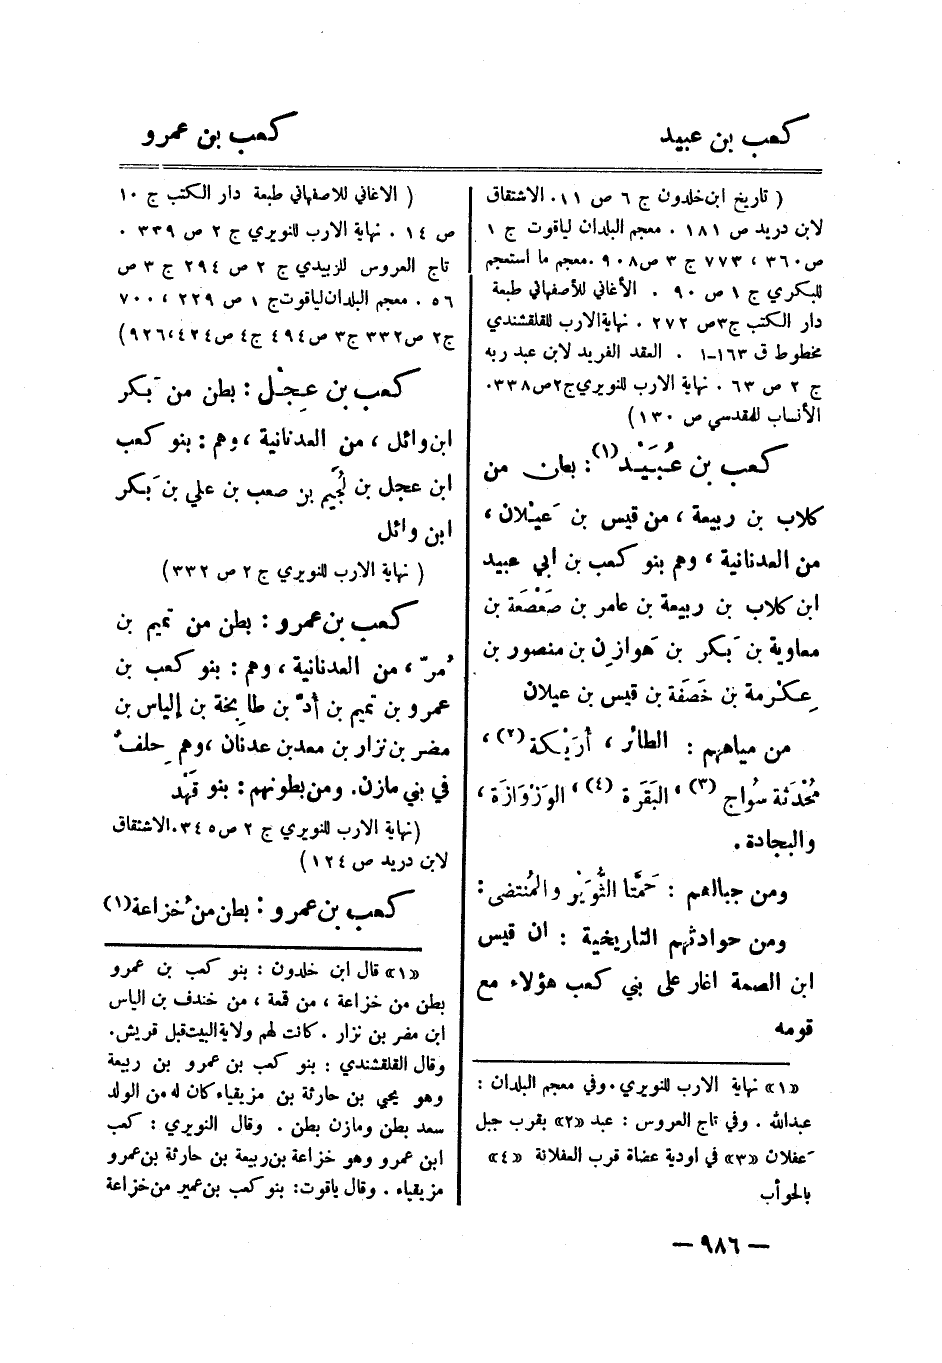 كعب بن عبيد
كعب بن عمرو
( تاريخ ابن خلدون ج ٦ ص ١١. الاشتقاق
لابن دريد ص ١٨١ . معجم البلدان لياقوت ج ١
ص٣٦٠ ، ٧٧٣ ج ٣ ص٩٠٨ .معجم ما استعجم
للبكري ج ١ ص ٩٠ . الأغاني للأصفهاني طبعة
دار الكتب ج٣ص ٢٧٢ . نهاية الارب للقلقشندي
مخطوط ق ١٦٣-١ . العقد الفريد لابن عبد ربه
ج ٢ ص ٦٣ . نهاية الارب للنويري ج٢ص٣٣٨.
الأنساب للمقدسي ص ١٣٠)
كعب بن عُبَيْد(١): بطن من
كلاب بن ربيعة ، من قيس بن عَيْلان ،
من العدنانية ، وهم بنو كعب بن ابي عبيد
ابن كلاب بن ربيعة بن عامر بن صَعْصَعة بن
معاوية بن بَكر بن هَوازِن بن منصور بن
عِكْرمة بن خَصَفة بن قيس بن عيلان
من مياههم : الطائر ، أرَيْكة (٢) ،
مُحْدَثة سُواج (٣) ، البَقَرة (٤) ، الوَزْوازَة ،
والبجادة .
ومن جبالهم : حَمَّتا الثُّوَيْر والمُنتضى :
ومن حوادثهم التاريخية : ان قيس
ابن الصمة اغار على بني كعب هؤلاء مع
قومه
«١» نهاية الارب للنويري . وفي معجم البلدان :
عبدالله . وفي تاج العروس : عبد «٢» بقرب جبل
عَفلان «٣» في اودية عضاة قرب العفلانة «٤»
بالحوأب
( الاغاني للاصفهاني طبعة دار الكتب ج ١٠
ص ١٤ . نهاية الارب للنويري ج ٢ ص ٣٣٩ .
تاج العروس للزبيدي ج ٢ ص ٢٩٤ ج ٣ ص
٥٦ . معجم البلدان لياقوت ج ١ ص ٢٢٩ ، ٧٠٠
ج٢ ص٣٣٢ ج٣ ص٤٩٤ ج٤ ص٤٢٤ ،٩٢٦)
كعب بن عِجْل : بطن من بَكر
ابن وائل ، من العدنانية ، وهم : بنو كعب
ابن عجل بن لُجَيم بن صعب بن علي بن بَكر
ابن وائل
( نهاية الارب للنويري ج ٢ ص ٣٣٢ )
كعب بن عمرو : بطن من تميم بن
مُرّ ، من العدنانية ، وهم : بنو كعب بن
عمرو بن تميم بن أُدّ بن طابِخة بن إلياس بن
مضر بن نزار بن معد بن عدنان ،وهم حِلفٌ
في بني مازن . ومن بطونهم : بنو قَهْد
(نهاية الارب للنويري ج ٢ ص ٣٤٥. الاشتقاق
لابن دريد ص ١٢٤ )
كعب بن عمرو : بطن من خُزاعة (١)
«١» قال ابن خلدون : بنو كعب بن عمرو
بطن من خزاعة ، من قمعة ، من خندف بن الياس
ابن مضر بن نزار . كانت لهم ولاية البيت قبل قريش .
وقال القلقشندي : بنو كعب بن عمرو بن ربيعة
وهو يحيي بن حارثة بن مزيقياء كان له من الولد
سعد بطن ومازن بطن . وقال النويري : كعب
ابن عمرو وهو خزاعة بن ربيعة بن حارثة بن عمرو
مزيقياء . وقال ياقوت: بنو كعب بن عمير من خزاعة
— ٩٨٦ —